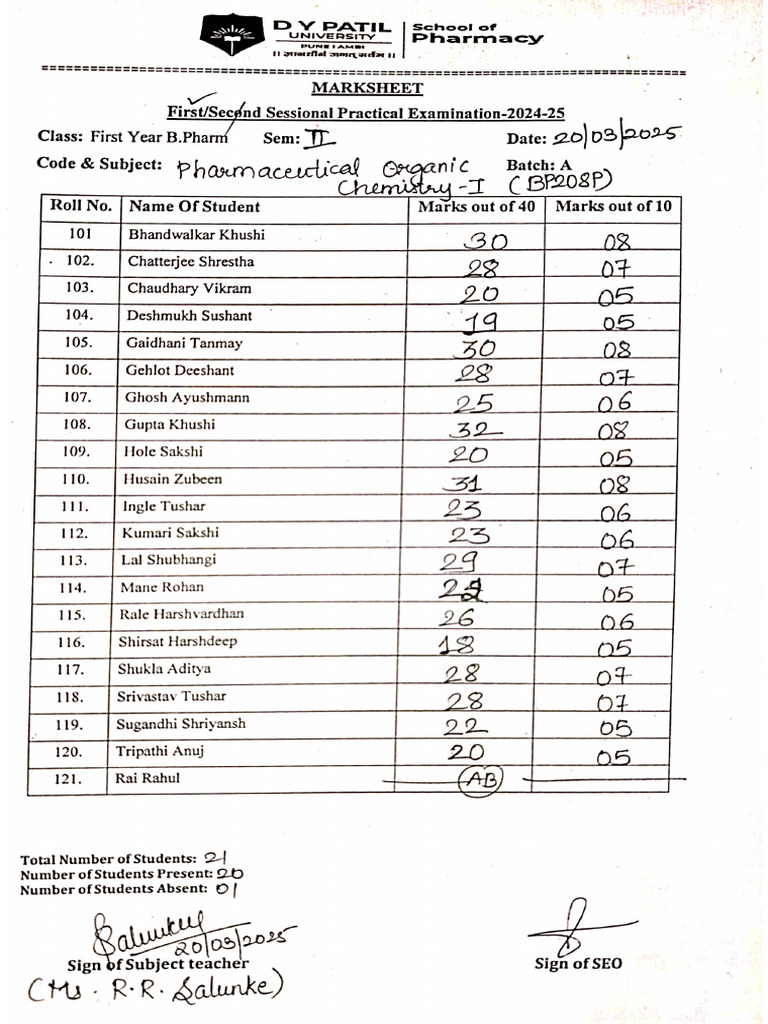 D Y PATIL
UNIVERSITY
PUNE | AMBI
|| ज्ञानशीलं जगत् सर्वम् ||
School of
Pharmacy
MARKSHEET
First/Second Sessional Practical Examination-2024-25
Class: First Year B.Pharm Sem: II Date: 20/03/2025
Code & Subject: Pharmaceutical Organic Batch: A
Chemistry-I (BP208P)
Roll No. Name Of Student Marks out of 40 Marks out of 10
101 Bhandwalkar Khushi 30 08
102. Chatterjee Shrestha 28 07
103. Chaudhary Vikram 20 05
104. Deshmukh Sushant 19 05
105. Gaidhani Tanmay 30 08
106. Gehlot Deeshant 28 07
107. Ghosh Ayushmann 25 06
108. Gupta Khushi 32 08
109. Hole Sakshi 20 05
110. Husain Zubeen 31 08
111. Ingle Tushar 23 06
112. Kumari Sakshi 23 06
113. Lal Shubhangi 29 07
114. Mane Rohan 22 05
115. Rale Harshvardhan 26 06
116. Shirsat Harshdeep 18 05
117. Shukla Aditya 28 07
118. Srivastav Tushar 28 07
119. Sugandhi Shriyansh 22 05
120. Tripathi Anuj 20 05
121. Rai Rahul AB
Total Number of Students: 21
Number of Students Present: 20
Number of Students Absent: 01
Salunkey
20/03/2025
Sign of Subject teacher Sign of SEO
(Ms. R. R. Salunke)